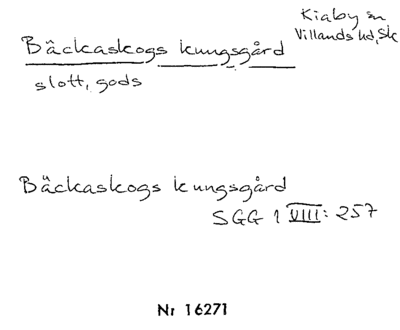 Kiaby sn
Villands hd, Sk
Bäckaskogs kungsgård
slott, gods
Bäckaskogs kungsgård
SGG 1 VIII: 257
Nr 16271